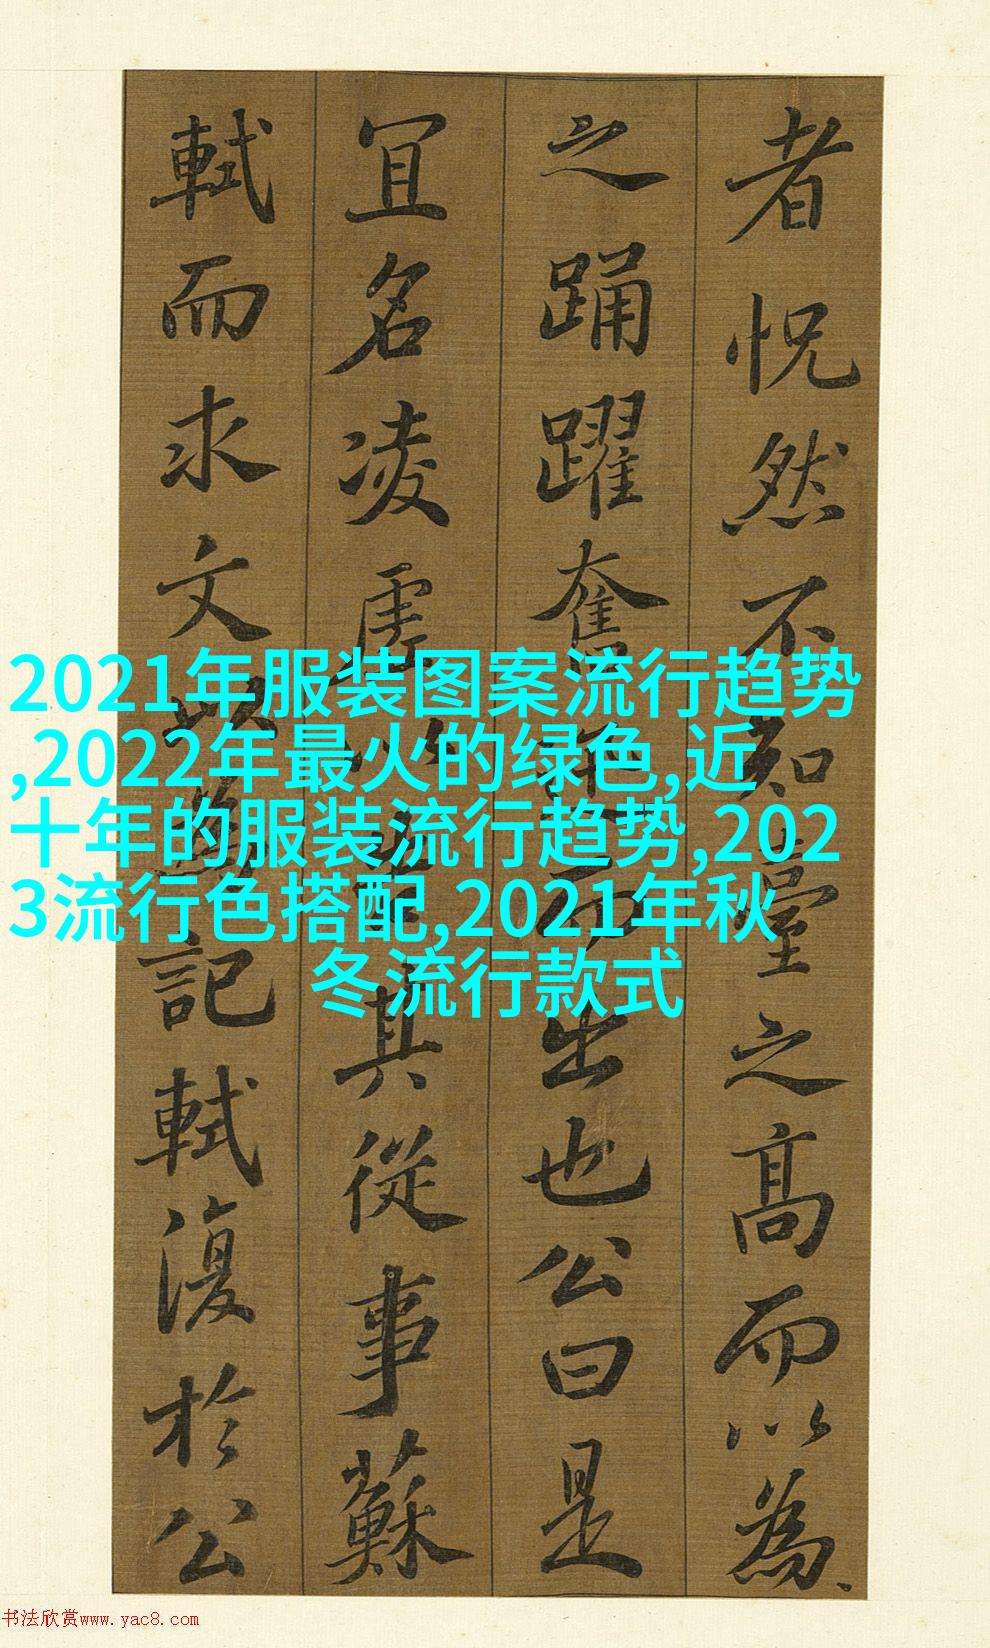 者怳然不知臺之高而以為
之踊躍奮而出也公曰是
宜名凌虛以其從事蘇
軾而求文以為記軾復於公
2021年服装图案流行趋势
,2022年最火的绿色,近
十年的服装流行趋势,202
3流行色搭配,2021年秋
冬流行款式
书法欣赏www.yac8.com